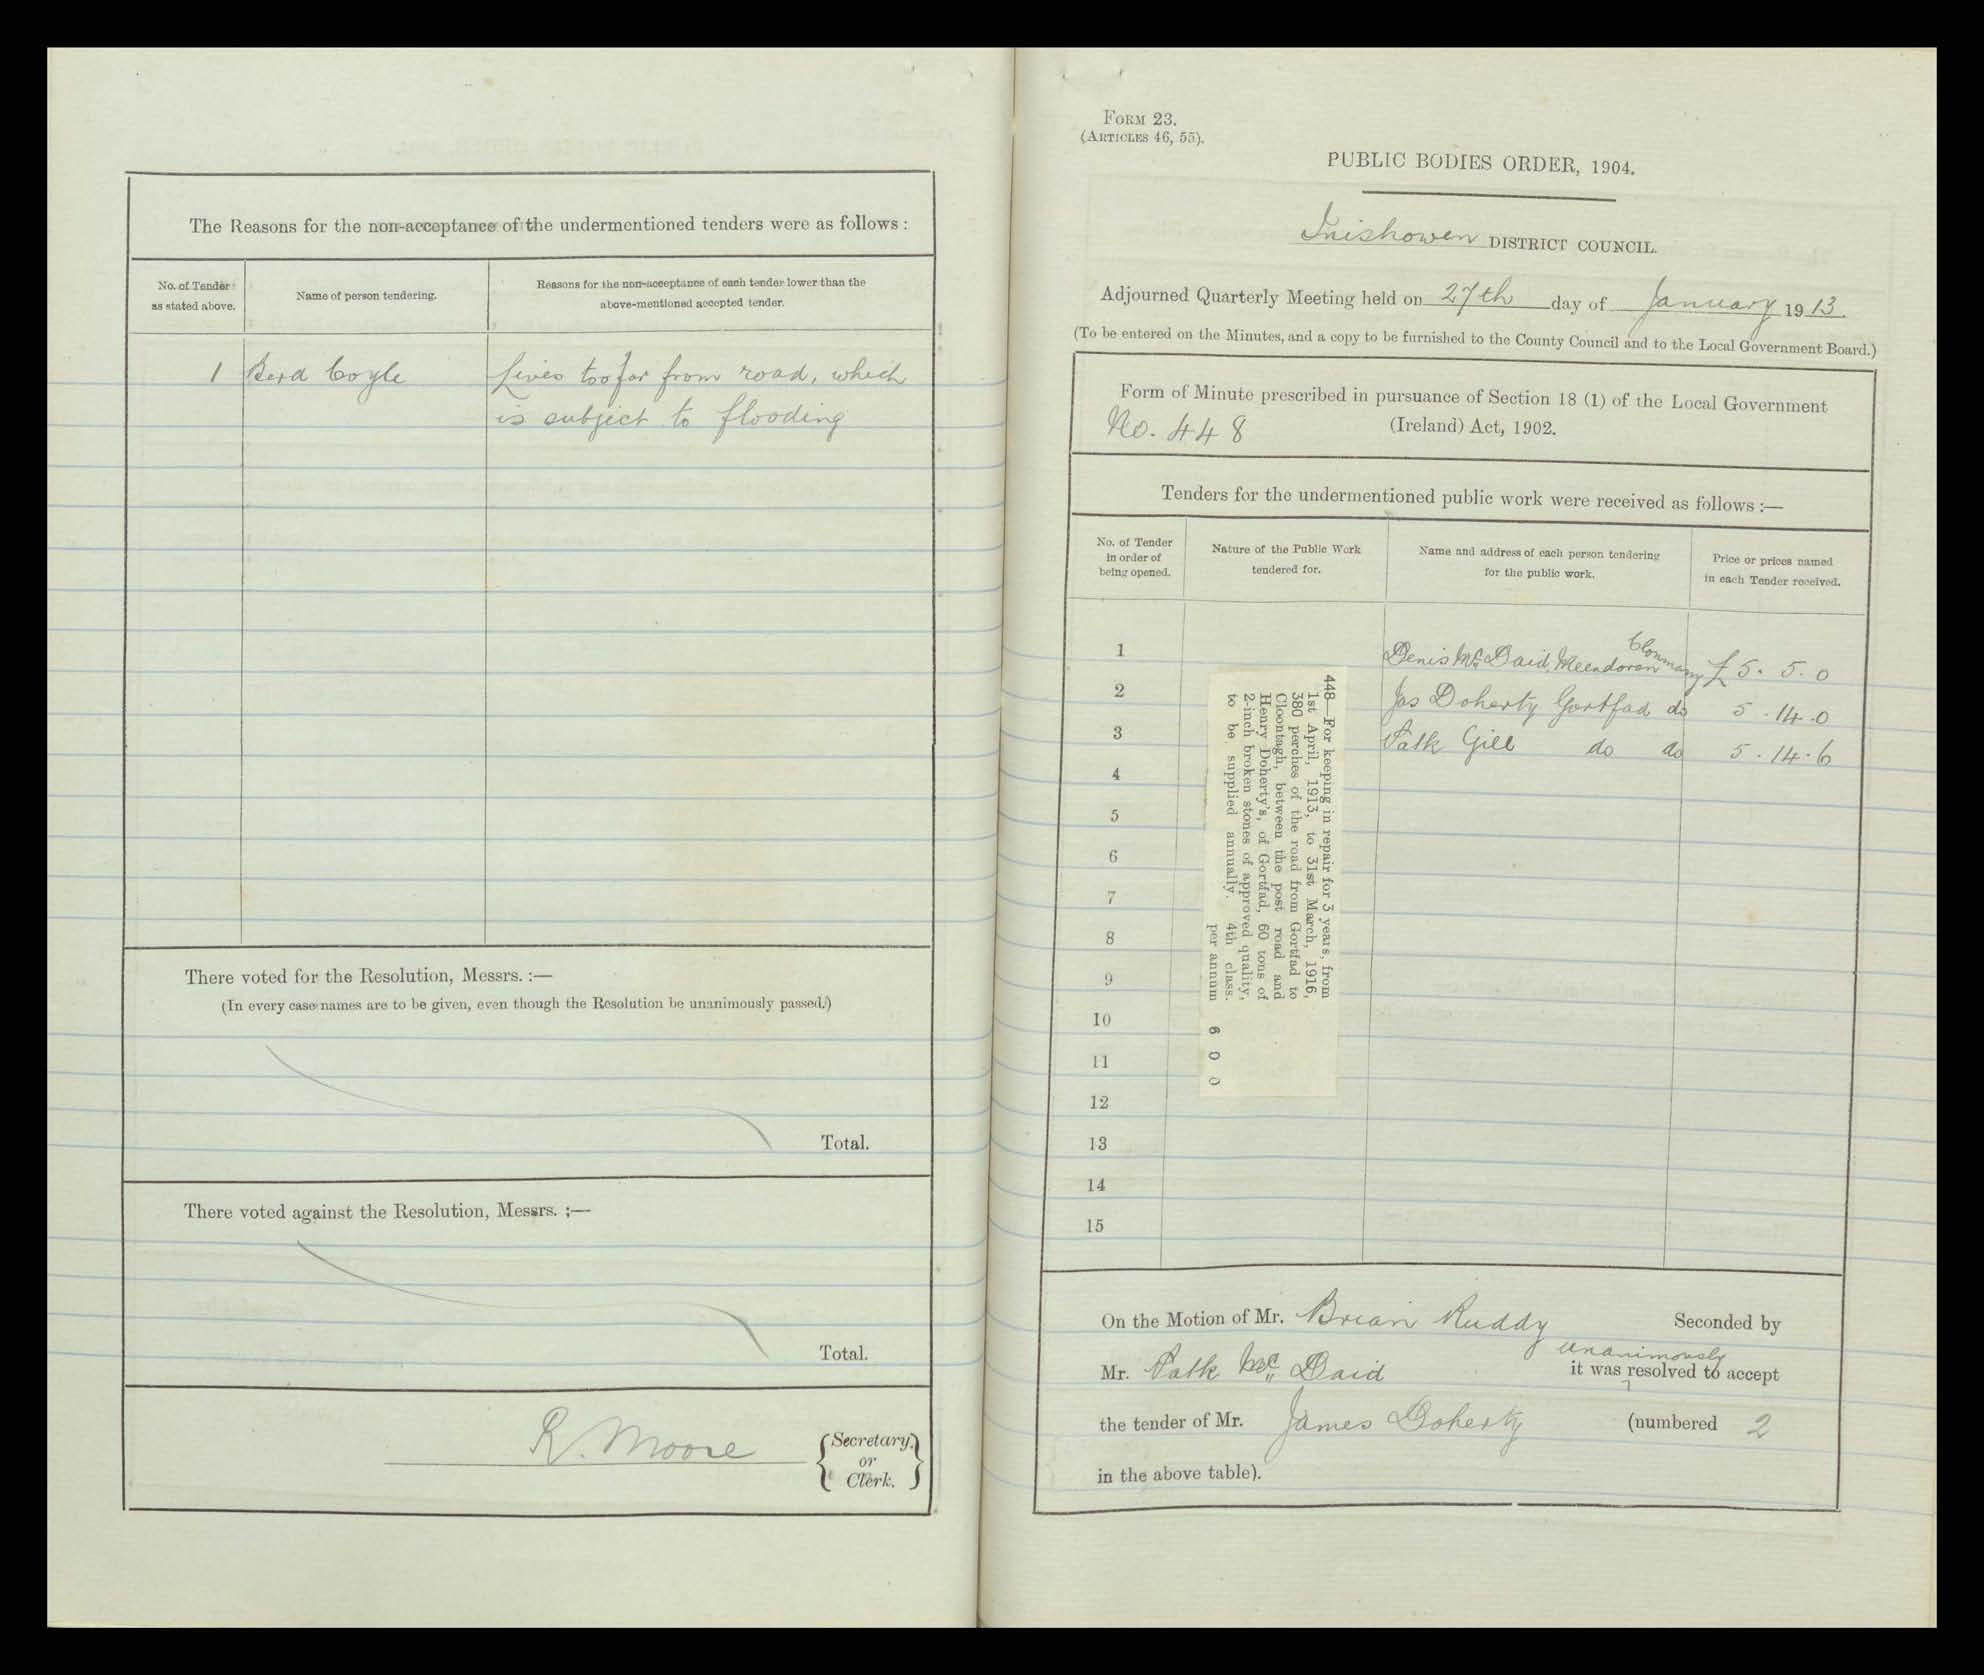 The Reasons for the non-acceptance of the undermentioned tenders were as follows :
No. of Tender as stated above.
Name of person tendering.
Reasons for the non-acceptance of each tender lower than the above-mentioned accepted tender.
1 Berd Coyle Lives too far from road, which
is subject to flooding
There voted for the Resolution, Messrs. :—
(In every case names are to be given, even though the Resolution be unanimously passed.)
Total.
There voted against the Resolution, Messrs. :—
Total.
R. Moore {Secretary or Clerk.}
FORM 23.
(ARTICLES 46, 55).
PUBLIC BODIES ORDER, 1904.
Inishowen DISTRICT COUNCIL.
Adjourned Quarterly Meeting held on 27th day of January 1913.
(To be entered on the Minutes, and a copy to be furnished to the County Council and to the Local Government Board.)
Form of Minute prescribed in pursuance of Section 18 (1) of the Local Government
No. 448 (Ireland) Act, 1902.
Tenders for the undermentioned public work were received as follows :—
No. of Tender in order of being opened.
Nature of the Public Work tendered for.
Name and address of each person tendering for the public work.
Price or prices named in each Tender received.
1 Denis McDaid, Meendoran Clonmany £5. 5. 0
2 Jas Doherty Gortfad do 5. 14. 0
3 Patk Gill do do 5. 14. 6
4
5
6
7
8
9
10
11
12
13
14
15
448—For keeping in repair for 3 years, from
1st April, 1913, to 31st March, 1916,
380 perches of the road from Gortfad to
Cloontagh, between the post road and
Henry Doherty's, of Gortfad, 60 tons of
2-inch broken stones of approved quality,
to be supplied annually. 4th class.
per annum 6 0 0
On the Motion of Mr. Brian Ruddy Seconded by
Mr. Patk McDaid it was unanimously resolved to accept
the tender of Mr. James Doherty (numbered 2
in the above table).